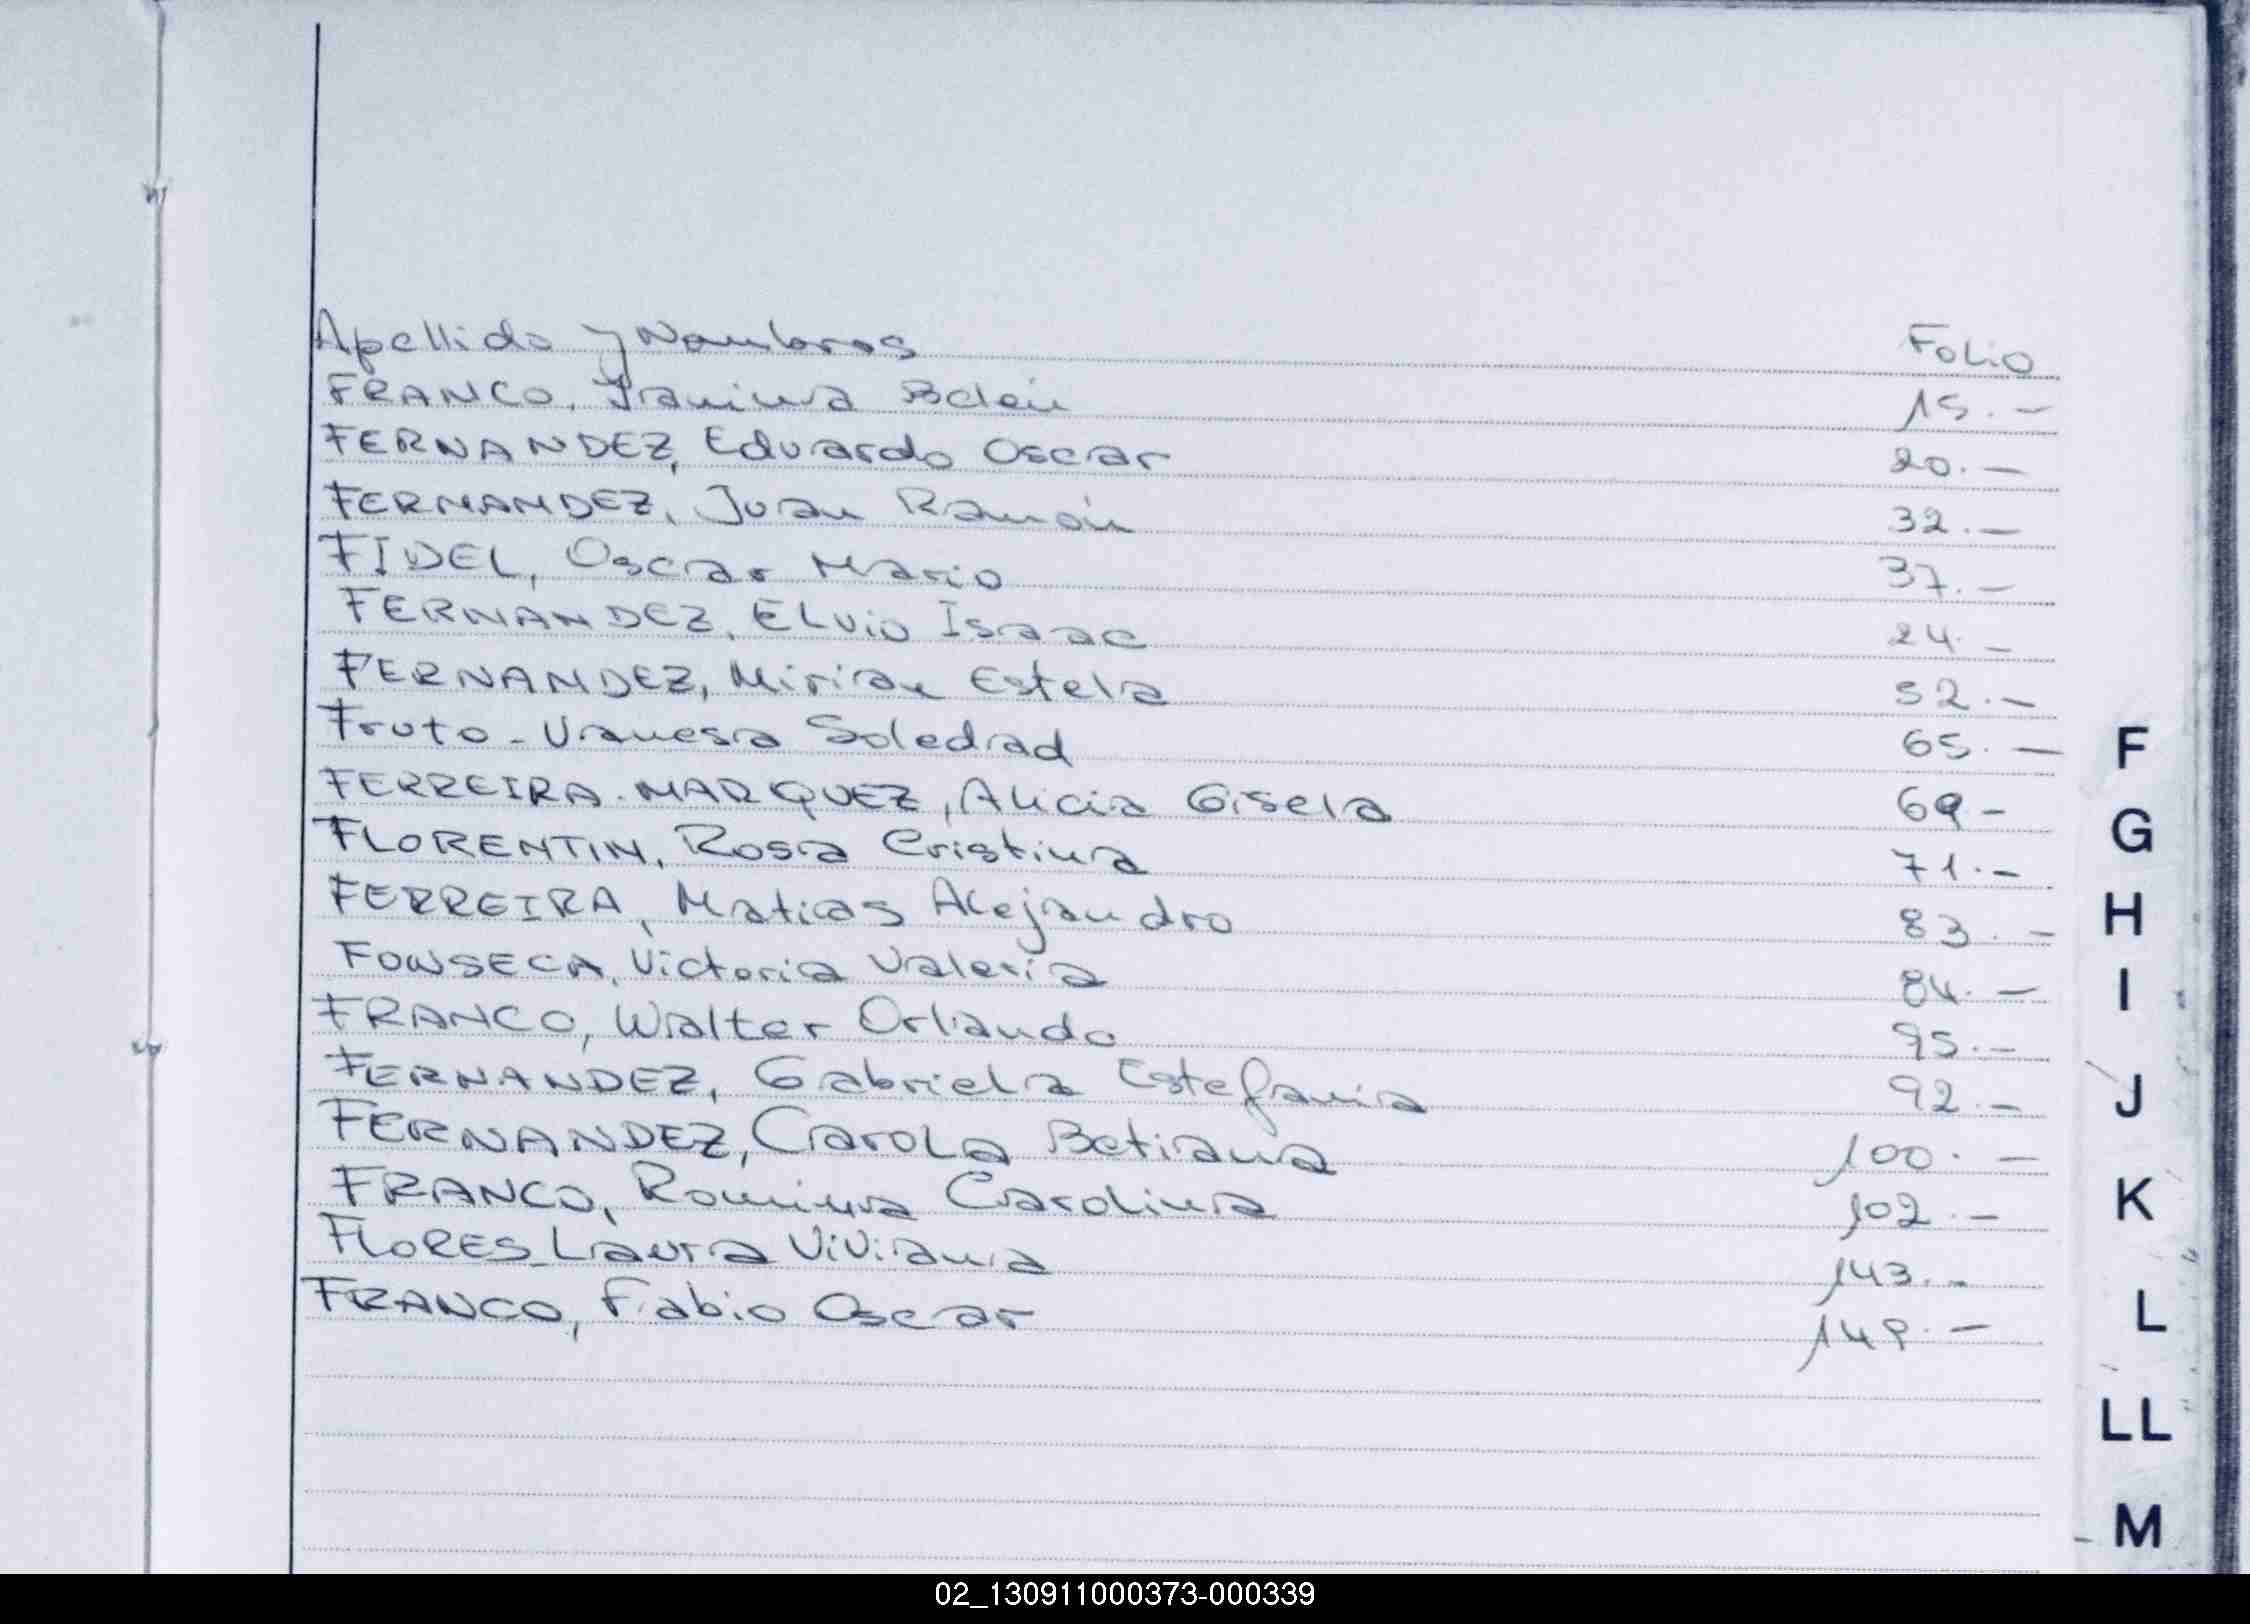 Apellido y Nombres Folio
FRANCO, Yanina Belén 15.-
FERNANDEZ, Eduardo Oscar 20.-
FERNANDEZ, Juan Ramón 32.-
FIDEL, Oscar Mario 37.-
FERNANDEZ, Elvio Isaac 24.-
FERNANDEZ, Mirian Estela 52.-
Fruto - Vanesa Soledad 65.-
FERREIRA. MARQUEZ, Alicia Gisela 69-
FLORENTIN, Rosa Cristina 71.-
FERREIRA, Matias Alejandro 83.-
FONSECA, Victoria Valeria 84.-
FRANCO, Walter Orlando 95.-
FERNANDEZ, Gabriela Estefania 92.-
FERNANDEZ, Carola Betiana 100.-
FRANCO, Romina Carolina 102.-
FLORES_Laura Viviana 143.-
FRANCO, Fabio Oscar 149.-
F
G
H
I
J
K
L
LL
M
02_130911000373-000339